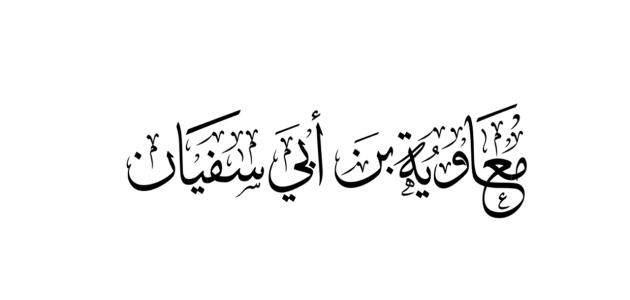 معاوية بن أبي سفيان